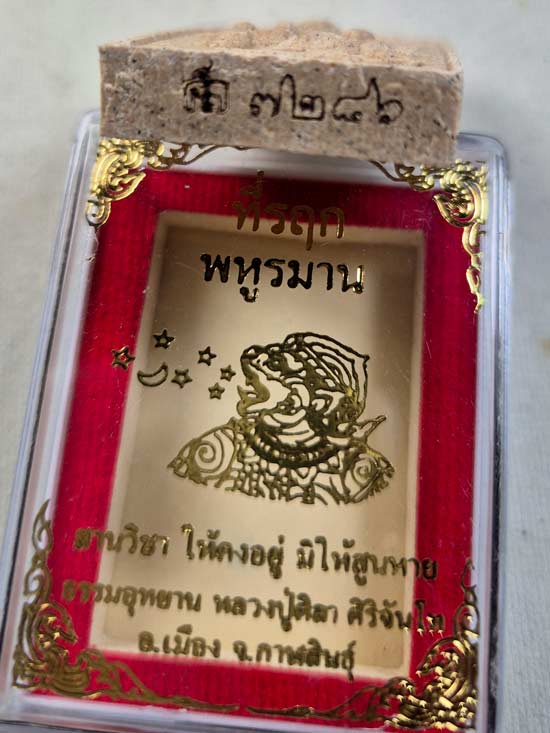 ๗๒๘๖
ที่รฤก
พหูรมาน
สานวิชา ให้คงอยู่ มิให้สูญหาย
ธรรมอุทยาน หลวงปู่ศิลา ศิริจันโท
อ.เมือง จ.กาฬสินธุ์